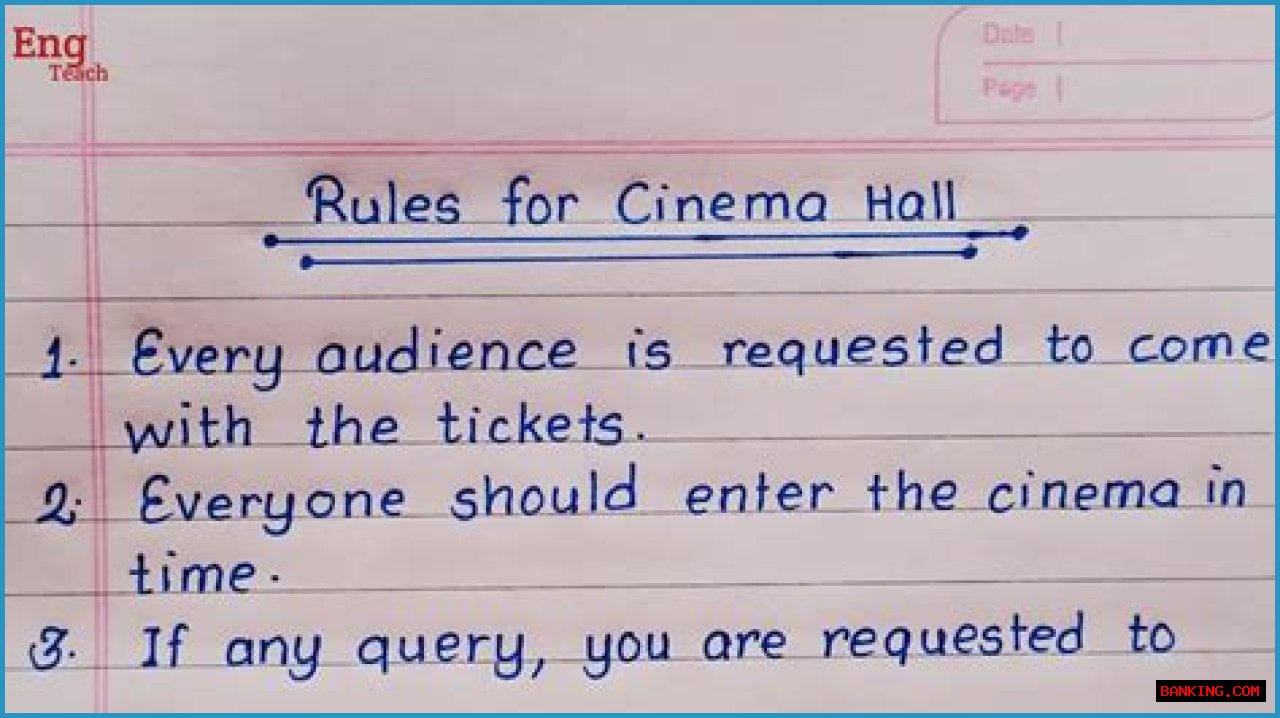 Eng
Teach
Date
Page
Rules for Cinema Hall
1. Every audience is requested to come
with the tickets.
2. Everyone should enter the cinema in
time.
3. If any query, you are requested to
BANKING.COM